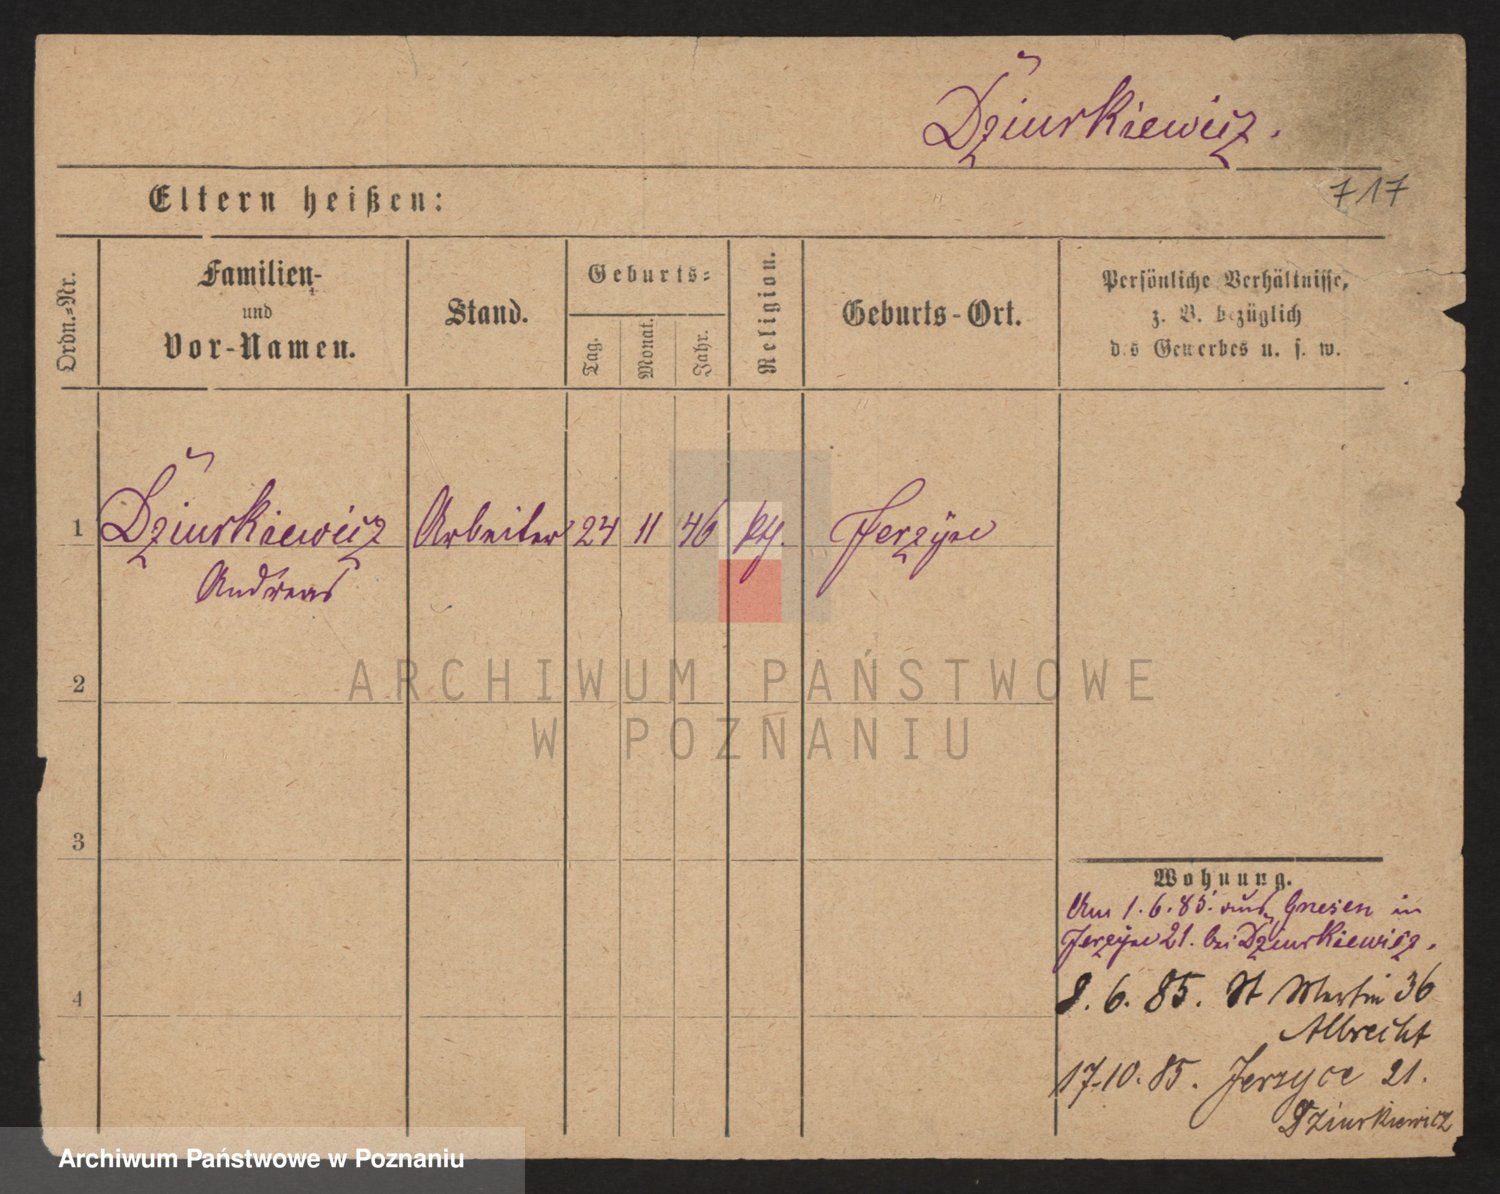 Dziurkiewicz.
717
Eltern heißen:
Ordn.=Nr.
Familien-
und
Vor-Namen.
Stand.
Geburts=
Tag.
Monat.
Jahr.
Religion.
Geburts-Ort.
Persönliche Verhältnisse,
z. B. bezüglich
des Gewerbes u. s. w.
1 Dziurkiewicz Arbeiter 24 11 46 kth. Jerzyce
Andreas
2
3
4
Wohnung.
Am 1.6.85. aus Gnesen in
Jerzyce 21. bei Dziurkiewicz.
8. 6. 85. St Martin 36
Albrecht
17.10.85. Jerzyce 21.
Dziurkiewicz
ARCHIWUM PAŃSTWOWE
W POZNANIU
Archiwum Państwowe w Poznaniu